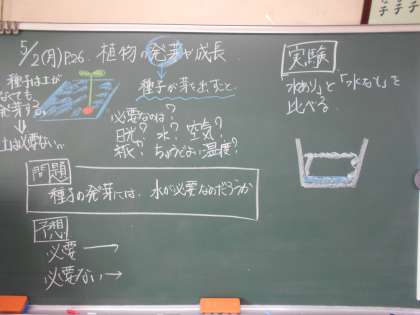 5/2(月)P.26. 植物の発芽や成長
種子は土が
なくても
発芽する
土は必要ない…
種子が芽を出すこと。
必要なのは?
日光? 水? 空気?
ちょうどよい温度?
問題
種子の発芽には、水が必要なのだろうか
予想
必要 →
必要ない→
実験
「水あり」と「水なし」を
比べる。